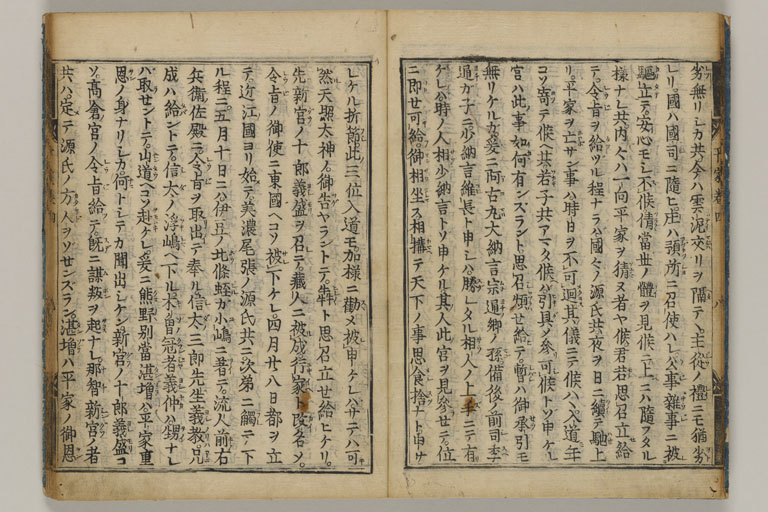 劣無リシカ共今ハ雲泥交リヲ隔テヽ主從ノ禮ニモ猶劣
レリ國ハ國司ニ隨ヒ庄ハ預所ニ召使ハレ公事雜事ニ被
驅立テ安心モシ不候倩當世ノ體ヲ見候ニ上ニハ隨フタル
樣ナレ共内々ハ一向平家ヲ猜ヌ者ヤ候君若思召立給
テ令旨ヲ給ツル程ナラハ國々ノ源氏共夜ヲ日ニ續テ馳上
リ平家ヲ亡サン事ハ時日ヲ不可廻其儀ニテ候ハヽ入道年
コソ寄テ候ヘ共若子共アマタ候ヘハ引具ノ參可候トソ申ケル
宮ハ此事如何有ンズラント思召煩セ給テ暫ハ御承引モ
無リケルカ爰ニ阿古丸大納言宗通卿ノ孫備後ノ前司季
通カ子ニ少納言維長ト申シハ勝レタル相人ノ上手ニテ有
ケレハ時ノ人相少納言トソ申ケル其人此宮ヲ見參セテ位
ニ即セ可給御相坐ス相構テ天下ノ事思食捨ナト申サ
レケル折節此三位入道モ加樣ニ勸メ被申ケレハサテハ可
然天照太神ノ御告ヤラントテ犇ト思召立セ給ヒケリ
先新宮ノ十郎義盛ヲ召テ藏人ニ被成行家ト改名ソ
令旨ノ御使ニ東國ヘコソ被下ケレ四月廿八日都ヲ立
テ近江國ヨリ始テ美濃尾張ノ源氏共ニ次第ニ觸テ下
ル程ニ五月十日ニハ伊豆ノ北條蛭カ小嶋ニ著テ流人前右
兵衛佐殿ニ令旨ヲ取出テ奉ル信太三郎先生義教ハ兄
成ハ給ントテ信太ノ浮嶋ヘ下ル木曽冠者義仲ハ甥ナレ
ハ取セントテ山道ヘコソ赴ケレ爰ニ熊野別當湛増ハ平家重
恩ノ身ナリシカ何トシテカ聞出シケン新宮ノ十郎義盛コ
ソ髙倉宮ノ令旨給テ既ニ謀叛ヲ起ナレ那智新宮ノ者
共ハ定テ源氏ノ方人ヲソセンズラン湛増ハ平家ノ御恩